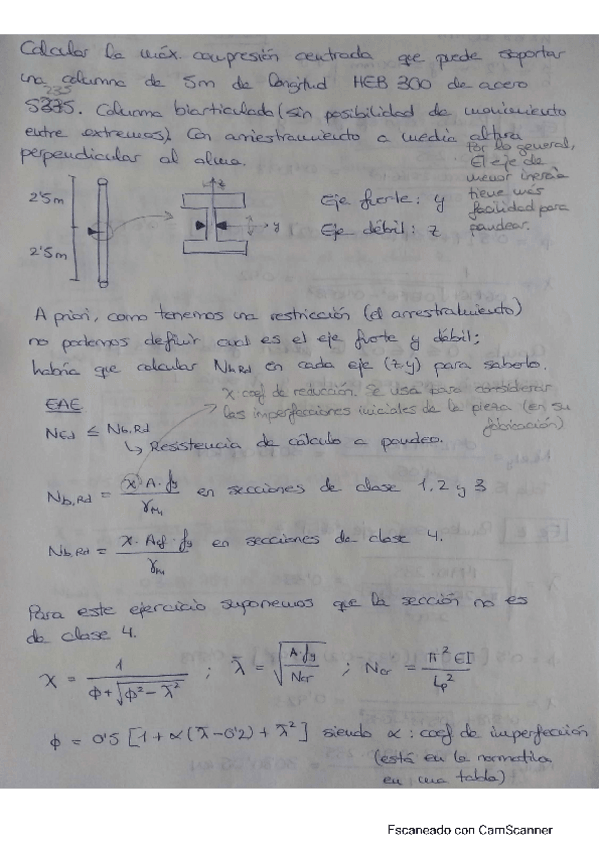 Calcular la máx. compresión centrada que puede soportar
una columna de 5m de longitud HEB 300 de acero
235
S375. Columna biarticulada (sin posibilidad de movimiento
entre extremos) Con arriestramiento a media altura
perpendicular al alma.
Por lo general,
El eje de
menor inercia
tiene más
facilidad para
pandear.
2'5m
2'5m
z
y
Eje fuerte: y
Eje débil: z
A priori, como tenemos una restricción (el arrestramiento)
no podemos definir cual es el eje fuerte y débil;
habría que calcular Nb,Rd en cada eje (z-y) para saberlo.
χ coef de reducción. Se usa para considerar
las imperfecciones iniciales de la pieza (en su
fabricación)
EAE
NEd ≤ Nb,Rd
↳ Resistencia de cálculo a pandeo.
Nb,Rd = χ A · fy / γM1 en secciones de clase 1, 2 y 3
Nb,Rd = χ · Aef · fy / γM1 en secciones de clase 4.
Para este ejercicio suponemos que la sección no es
de clase 4.
χ = 1 / (ϕ + √(ϕ² − λ̄²)) ; λ̄ = √(A · fy / Ncr) ; Ncr = π² EI / Lp²
ϕ = 0'5 [1 + α (λ̄ − 0'2) + λ̄²] siendo α : coef de imperfección
(está en la normativa
en una tabla)
Escaneado con CamScanner